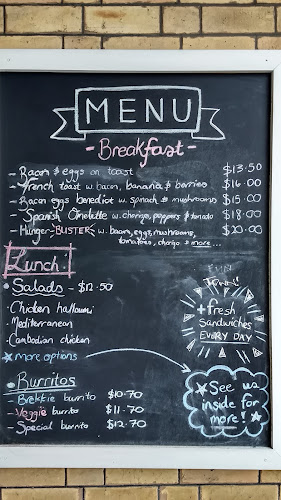 MENU
- Breakfast -
- Bacon & eggs on toast $13.50
- French toast w. bacon, banana & berries $16.00
- Bacon eggs benedict w. spinach & mushrooms $15.00
- Spanish Omelette w. chorizo, peppers & tomato $18.00
- Hunger BUSTER w. bacon, eggs, mushrooms, $20.00
tomatoes, chorizo & more...
Lunch:
Salads - $12.50
· Chicken halloumi
· Mediterranean
· Cambodian chicken
* more options
+ fresh
Sandwiches
EVERY DAY
• Burritos
- Brekkie burrito $10.70
- Veggie burrito $11.70
- Special burrito $12.70
* See us
inside for
more! *